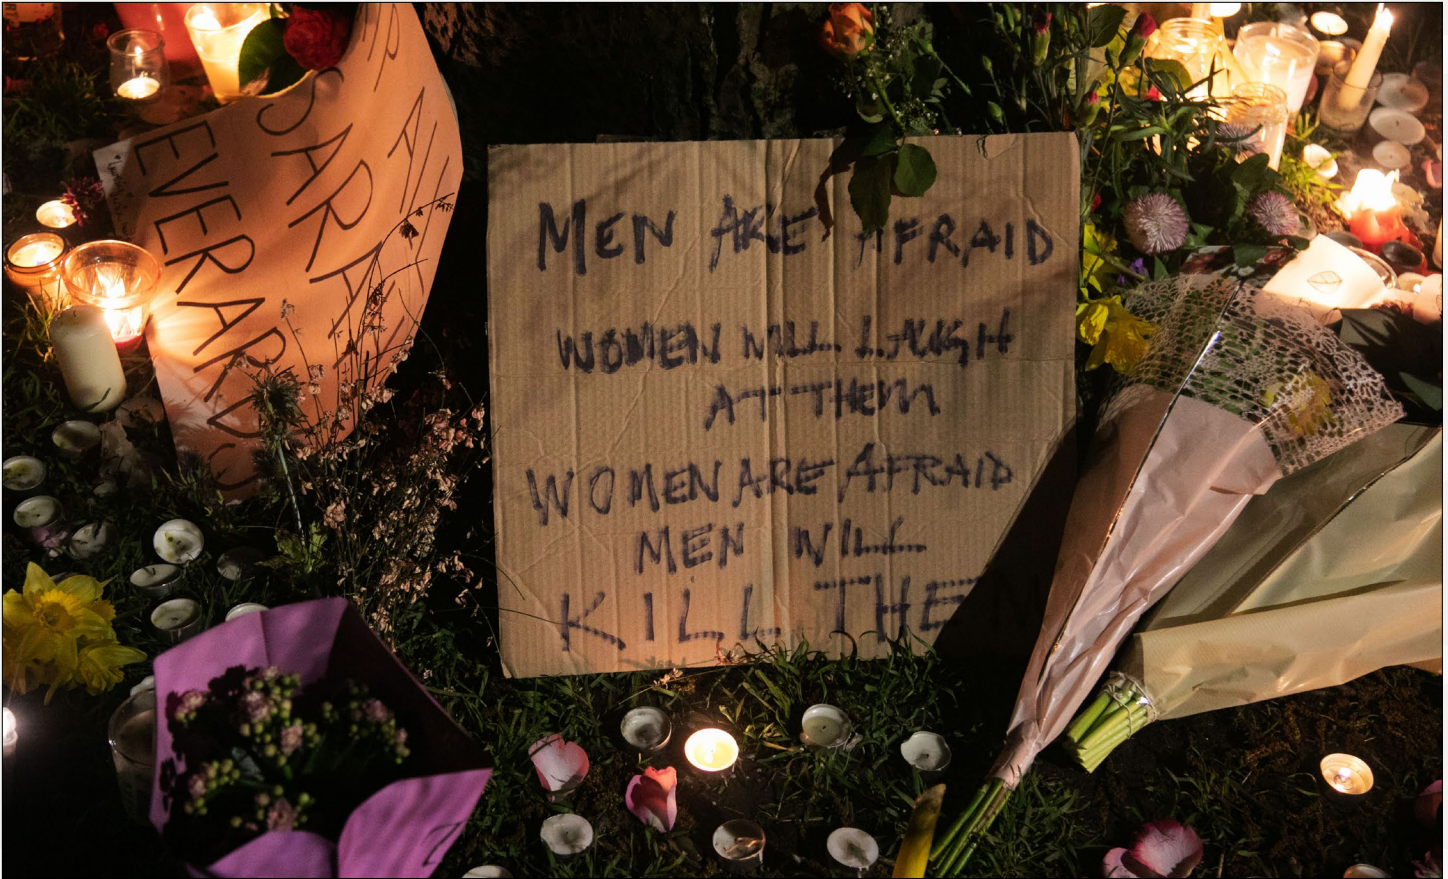 ALL
SARAH
EVERARDS
MEN ARE AFRAID
WOMEN WILL LAUGH
AT THEM
WOMEN ARE AFRAID
MEN WILL
KILL THEM